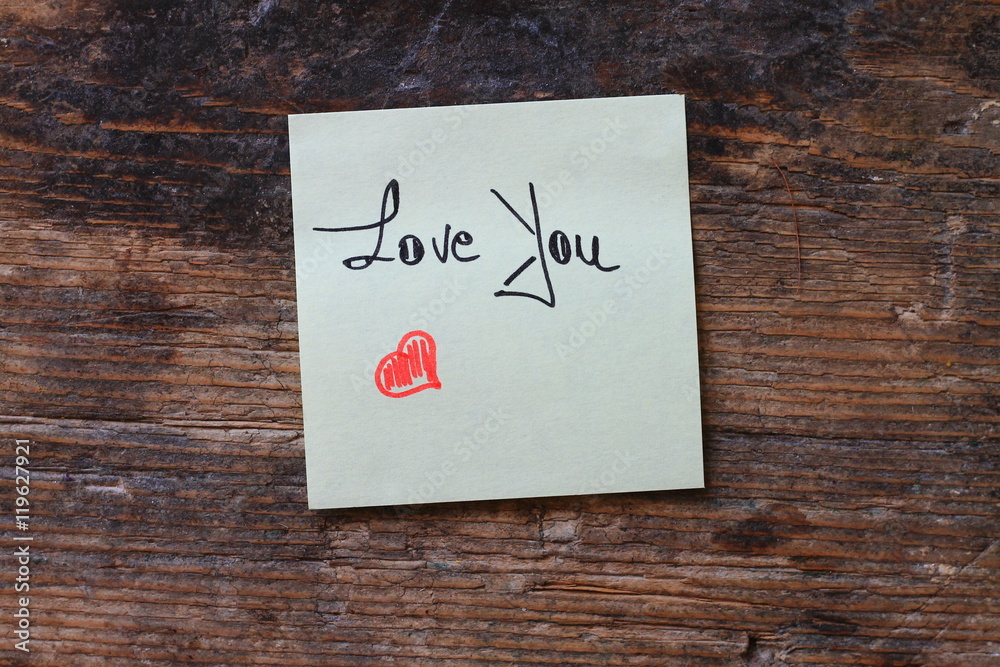 Love You
Adobe Stock | #119627921